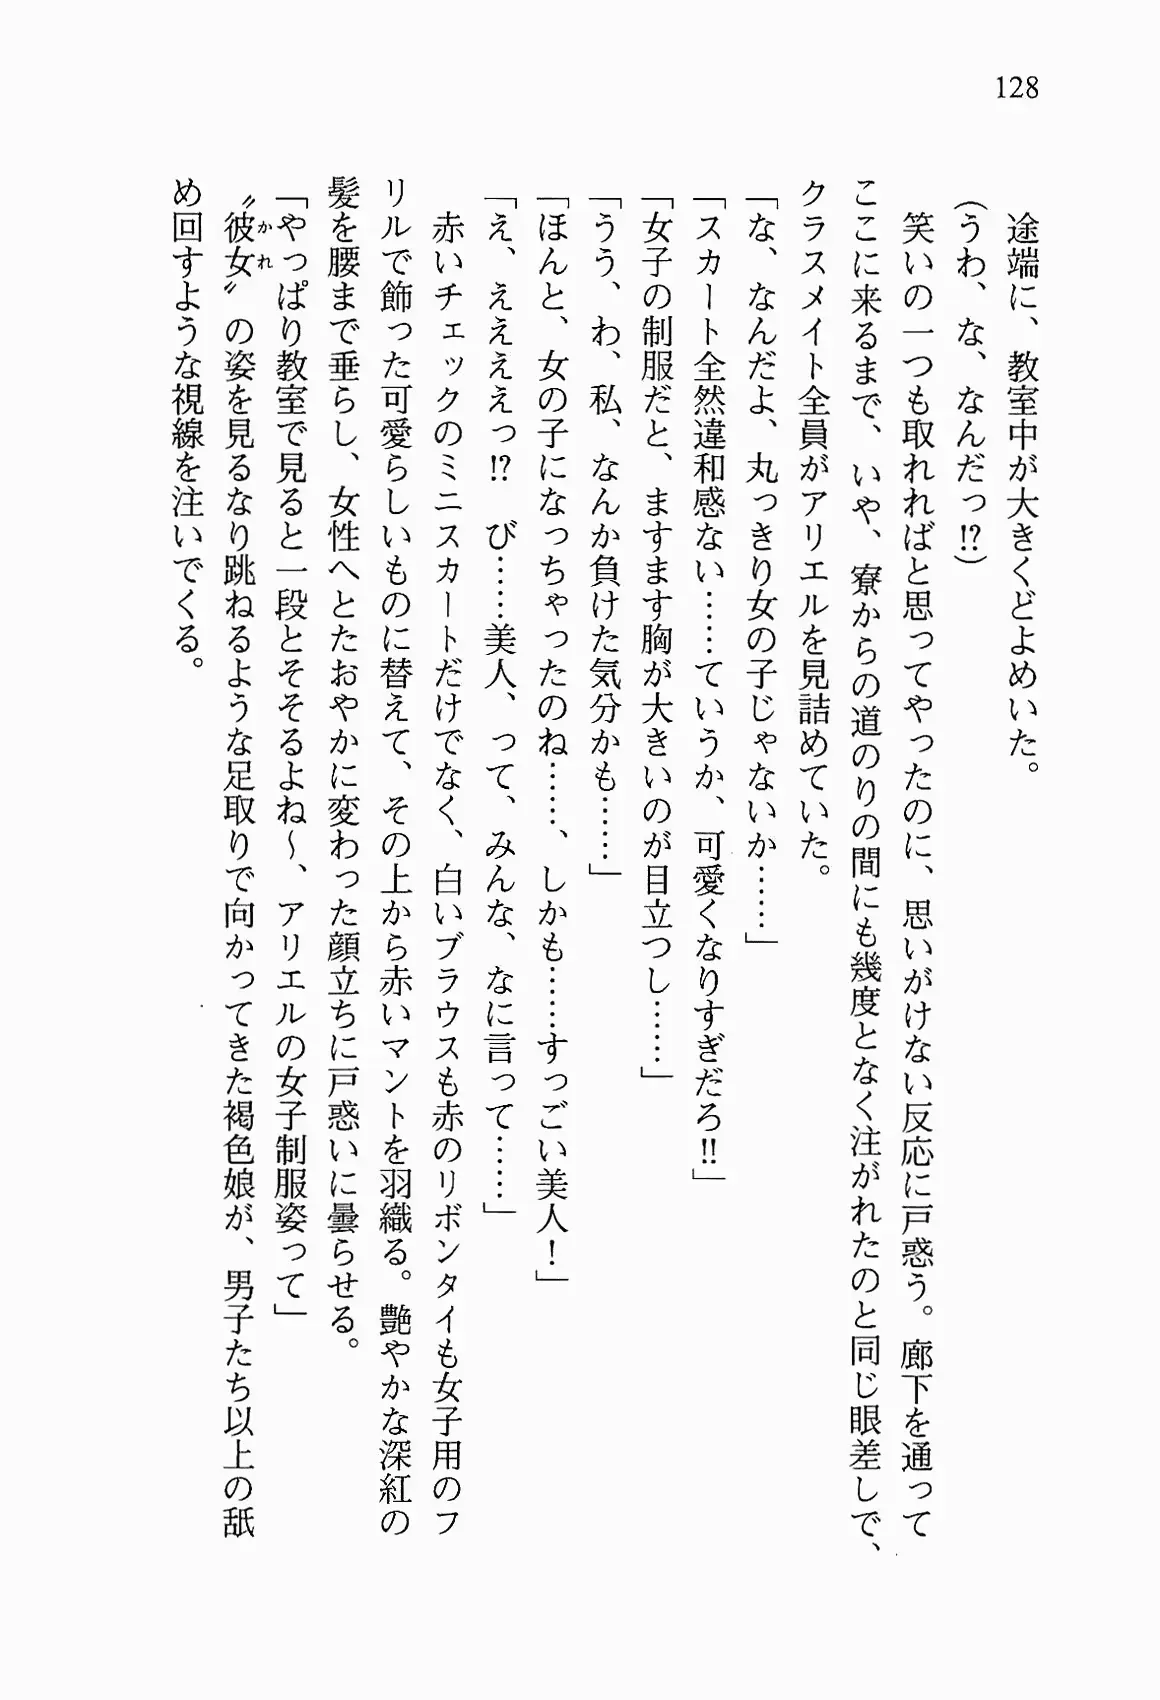 128
途端に、教室中が大きくどよめいた。
(うわ、な、なんだっ!?)
笑いの一つも取れればと思ってやったのに、思いがけない反応に戸惑う。廊下を通って
ここに来るまで、いや、寮からの道のりの間にも幾度となく注がれたのと同じ眼差しで、
クラスメイト全員がアリエルを見詰めていた。
「な、なんだよ、丸っきり女の子じゃないか……」
「スカート全然違和感ない……ていうか、可愛くなりすぎだろ!!」
「女子の制服だと、ますます胸が大きいのが目立つし……」
「うう、わ、私、なんか負けた気分かも……」
「ほんと、女の子になっちゃったのね……、しかも……すっごい美人！」
「え、えええぇっ!?　び……美人、って、みんな、なに言って……」
赤いチェックのミニスカートだけでなく、白いブラウスも赤のリボンタイも女子用のフ
リルで飾った可愛らしいものに替えて、その上から赤いマントを羽織る。艶やかな深紅の
髪を腰まで垂らし、女性へとたおやかに変わった顔立ちに戸惑いに曇らせる。
「やっぱり教室で見ると一段とそそるよね～、アリエルの女子制服姿って」
〝彼女〟の姿を見るなり跳ねるような足取りで向かってきた褐色娘が、男子たち以上の舐
かれ
め回すような視線を注いでくる。